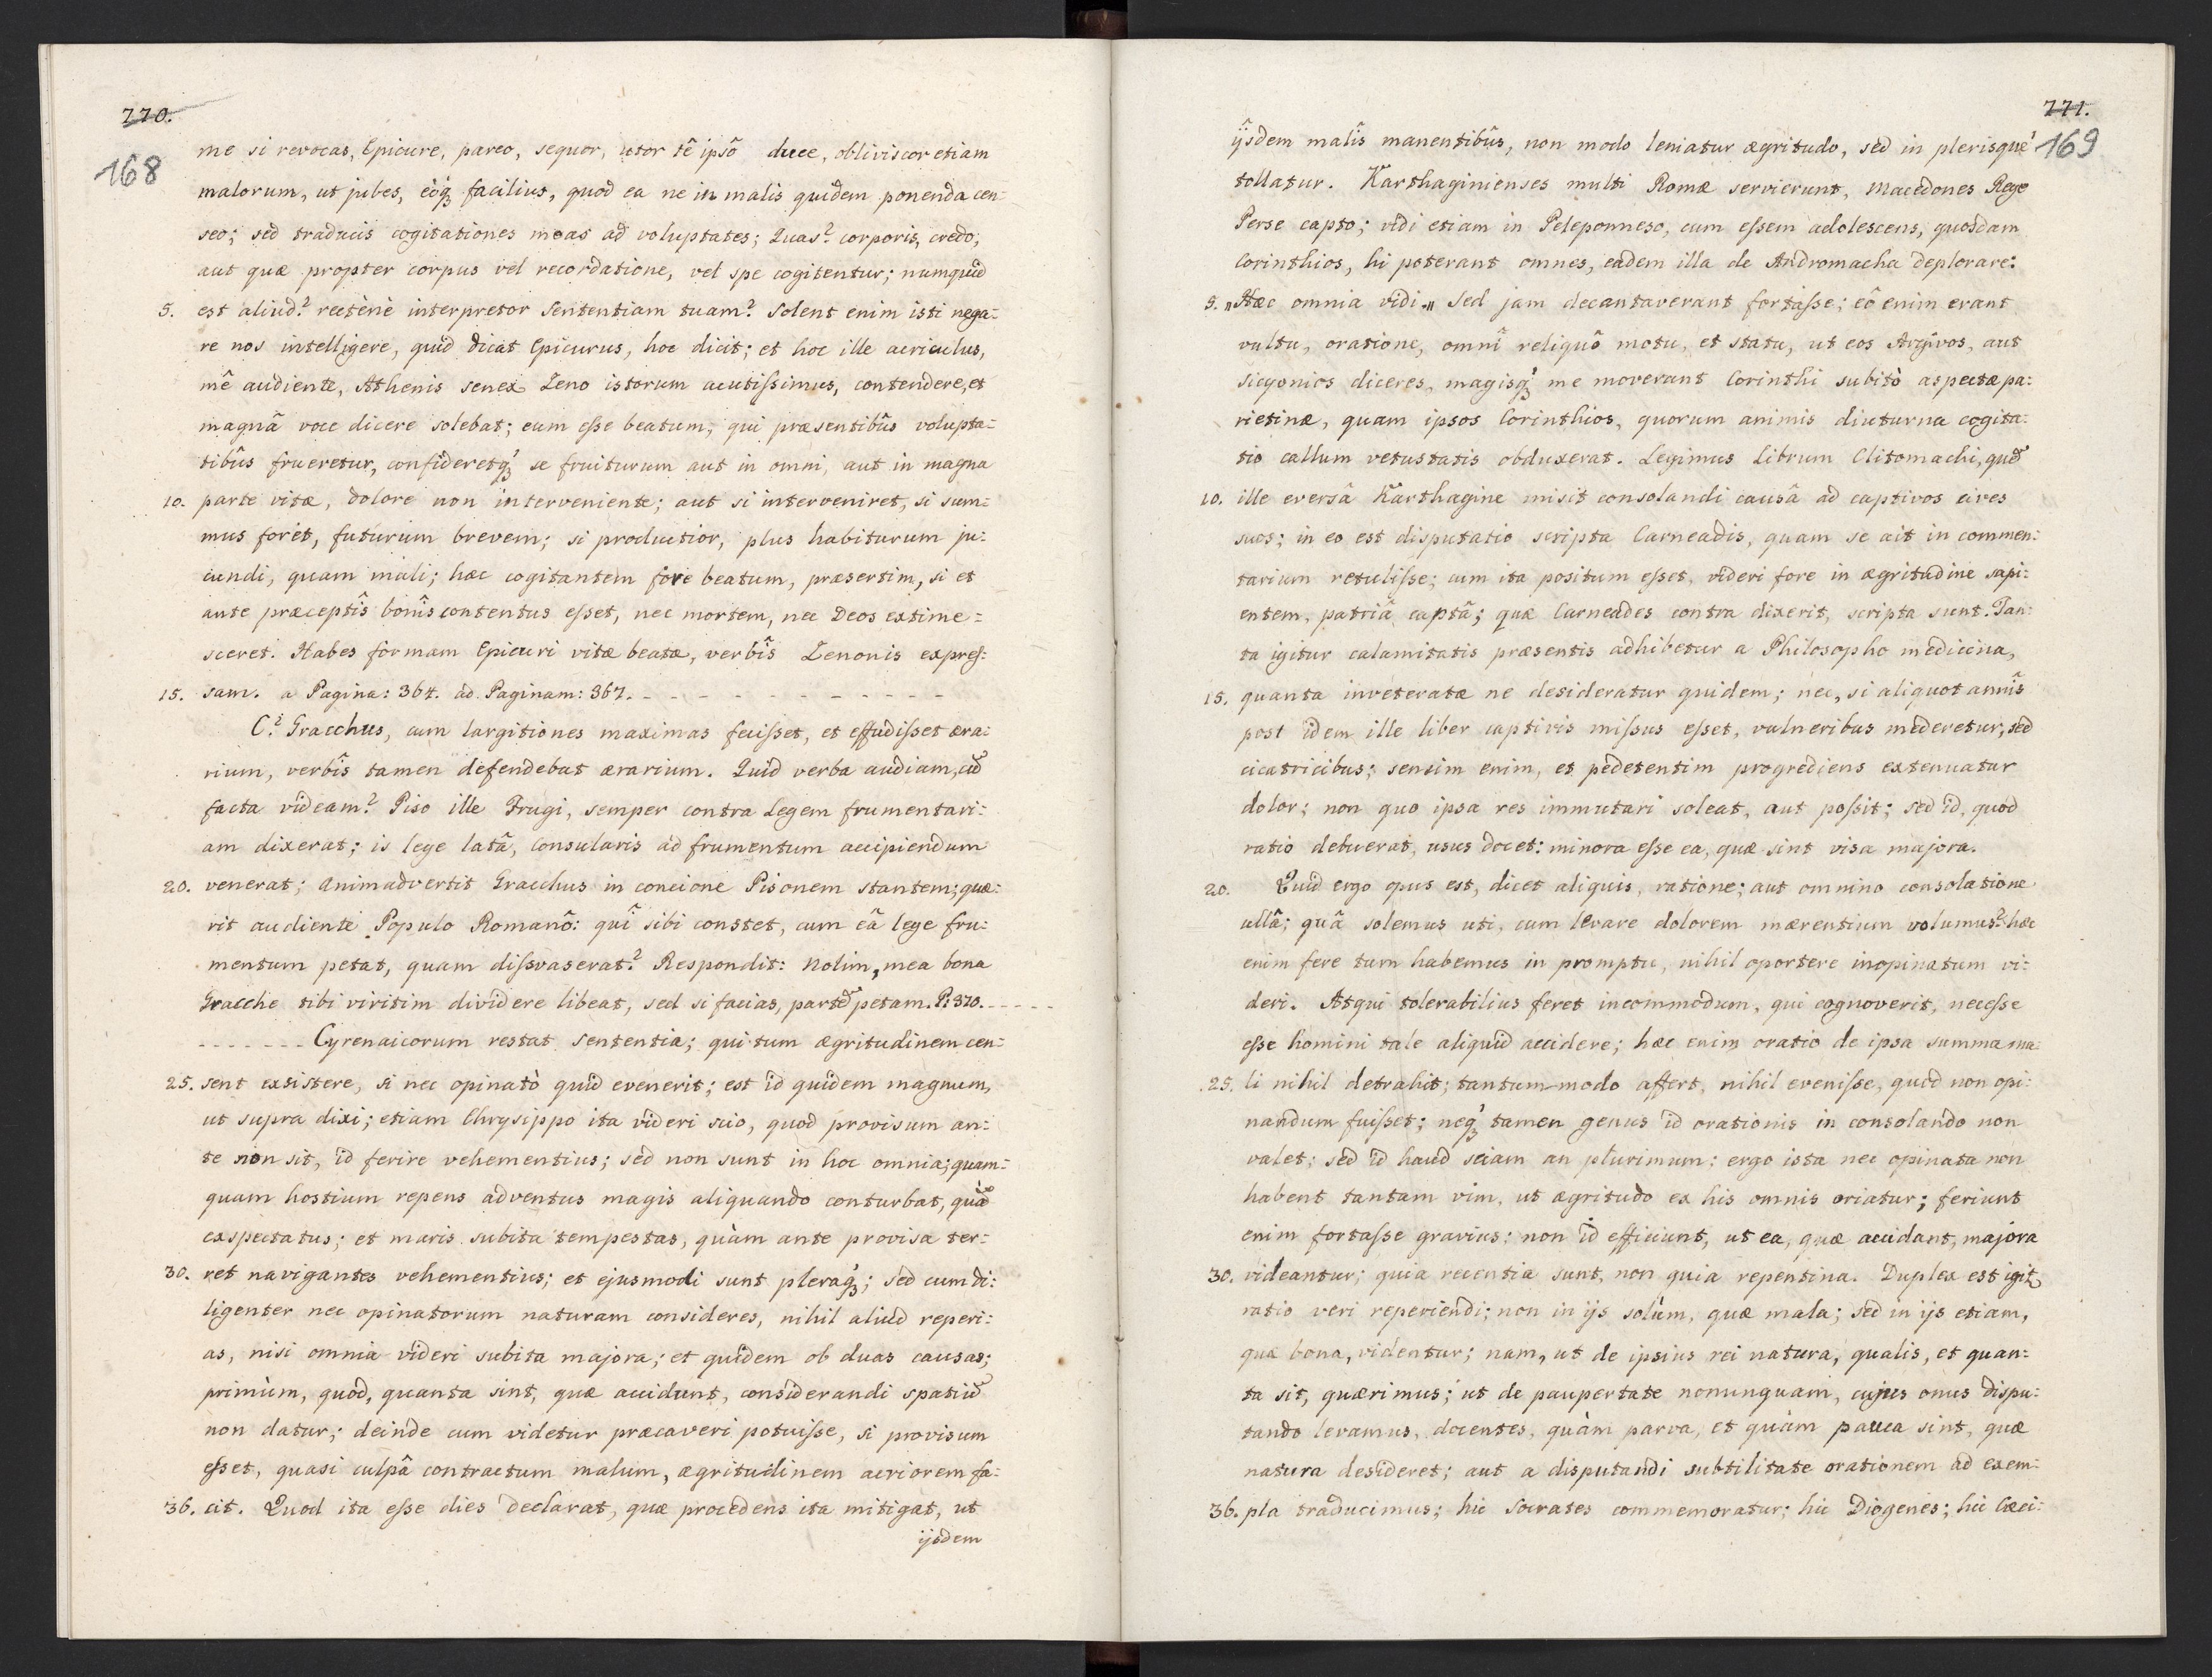 770.
168
me si revocas, Epicure, pareo, sequor, utor tê ipsô duce, obliviscor etiam
malorum, ut jubes, eòq́ꝫ facilius, quod ea ne in malis quidem ponenda cen=
seo; sed traducis cogitationes meas ad voluptates; Quas? corporis, credo,
aut quæ propter corpus vel recordatione, vel spe cogitentur; numquid
5. est aliud? rectènè interpretor Sententiam tuam? Solent enim isti nega=
re nos intelligere, quid dicat Epicurus, hoc dicit; et hoc ille acriculus,
mê audiente, Athenis senex Zeno istorum acutiſsimus, contendere, et
magnâ voce dicere solebat; eum eſse beatum, qui præsentibûs volupta=
tibûs frueretur, confideretq́ꝫ se fruiturum aut in omni, aut in magna
10. parte vitæ, dolore non interveniente; aut si interveniret, si sum=
mus foret, futurum brevem; si productior, plus habiturum ju=
cundi, quam mali; hæc cogitantem fore beatum, præsertim, si et
ante præceptîs bonîs contentus eſset, nec mortem, nec Deos extime=
sceret. Habes formam Epicuri vitæ beatæ, verbîs Zenonis expreſ=
15. sam. a Pagina: 364. ad Paginam: 367. - - - - - - - - - - -
C? Gracchus, cum largitiones maximas feciſset, et effudiſset æra=
rium, verbîs tamen defendebat ærarium. Quid verba audiam, cũ
facta videam? Piso ille Frugi, semper contra Legem frumentari=
am dixerat; is lege latâ, Consularis ad frumentum accipiendum
20. venerat; animadvertit Gracchus in concione Pisonem stantem; quæ=
rit audiente Populo Romanô: quî sibi constet, cum eâ lege fru=
mentum petat, quam diſsvaserat? Respondit: Nolim, mea bona
Gracche tibi viritim dividere libeat, sed si facias, partẽ petam. P: 370. - - - - -
- - - - - - - Cyrenaicorum restat Sententia; qui tum ægritudinem cen=
25. sent exsistere, si nec opinatò quid evenerit; est id quidem magnum,
ut supra dixi; etiam Chrysippo ita videri scio, quod provisum an=
te non sit, id ferire vehementius; sed non sunt in hoc omnia; quam=
quam hostium repens adventus magis aliquando conturbat, quã
exspectatus; et maris subita tempestas, quàm ante provisa ter=
30. ret navigantes vehementius; et ejusmodi sunt pleraq́ꝫ; sed cum di=
ligenter nec opinatorum naturam consideres, nihil aliud reperi=
as, nisi omnia videri subita majora; et quidem ob duas causas;
primùm, quod, quanta sint, quæ accidunt, considerandi spatiũ
non datur; deinde cum videtur præcaveri potuiſse, si provisum
eſset, quasi culpâ contractum malum, ægritudinem acriorem fa=
36. cit. Quod ita eſse dies declarat, quæ procedens ita mitigat, ut
ijsdem
771.
169
ijsdem malîs manentibûs, non modo leniatur ægritudo, sed in plerisque
tollatur. Karthaginienses multi Romæ servierunt, Macedones Rege
Perse capto; vidi etiam in Peleponneso, cum eſsem adolescens, quosdam
Corinthios, hi poterant omnes, eadem illa de Andromacha deplorare:
5. „Hæc omnia vidi„ Sed jam decantaverant fortaſse; eô enim erant
vultu, oratione, omnî reliquô motu, et statu, ut eos Argivos, aut
Sicyonios diceres, magisq́ꝫ me moverant Corinthi subitò aspectæ pa=
rietinæ, quam ipsos Corinthios, quorum animis diuturna cogita=
tio callum vetustatis obduxerat. Legimus Librum Clitomachi, quẽ
10. ille eversâ Karthagine misit consolandi causâ ad captivos cives
suos; in eo est disputatio scripta Carneadis, quam se ait in commen=
tarium retuliſse; cum ita positum eſset, videri fore in ægritudine sapi=
entem, patriâ captâ; quæ Carneades contra dixerit, scripta sunt. Tan=
ta igitur calamitatis præsentis adhibetur a Philosopho medicina,
15. quanta inveteratæ ne desideratur quidem; nec, si aliquot annîs
post idem ille liber captivis miſsus eſset, vulneribus mederetur, sed
cicatricibus; sensim enim, et pedetentim progrediens extenuatur
dolor; non quo ipsa res immutari soleat, aut poſsit; sed id, quod
ratio debuerat, usus docet: minora eſse ea, quæ sint visa majora.
20. Quid ergo opus est, dicet aliquis, ratione; aut omnino consolatione
ullâ; quâ solemus uti, cum levare dolorem mærentium volumus? hæc
enim fere tum habemus in promptu, nihil oportere inopinatum vi=
deri. Atqui tolerabilius feret incommodum, qui cognoverit, neceſse
eſse homini tale aliquid accidere; hæc enim oratio de ipsa summa ma=
25. li nihil detrahit; tantum-modo affert, nihil eveniſse, quod non opi=
nandum fuiſset; neq́ꝫ tamen genus id orationis in consolando non
valet; sed id haud sciam an plurimum: ergo ista nec opinata non
habent tantam vim, ut ægritudo ex his omnis oriatur; feriunt
enim fortaſse gravius: non id efficiunt, ut ea, quæ accidant, majora
30. videantur; quia recentia sunt, non quia repentina. Duplex est igit̃
ratio veri reperiendi; non in ijs solùm, quæ mala; sed in ijs etiam,
quæ bona, videntur; nam, ut de ipsius rei natura, qualis, et quan=
ta sit, quærimus; ut de paupertate nonunquam, cujus onus dispu=
tando levamus, docentes, quàm parva, et quàm pauca sint, quæ
natura desideret; aut a disputandi subtilitate orationem ad exem=
36. pla traducimus; hic Socrates commemoratur; hic Diogenes; hic Cæci=